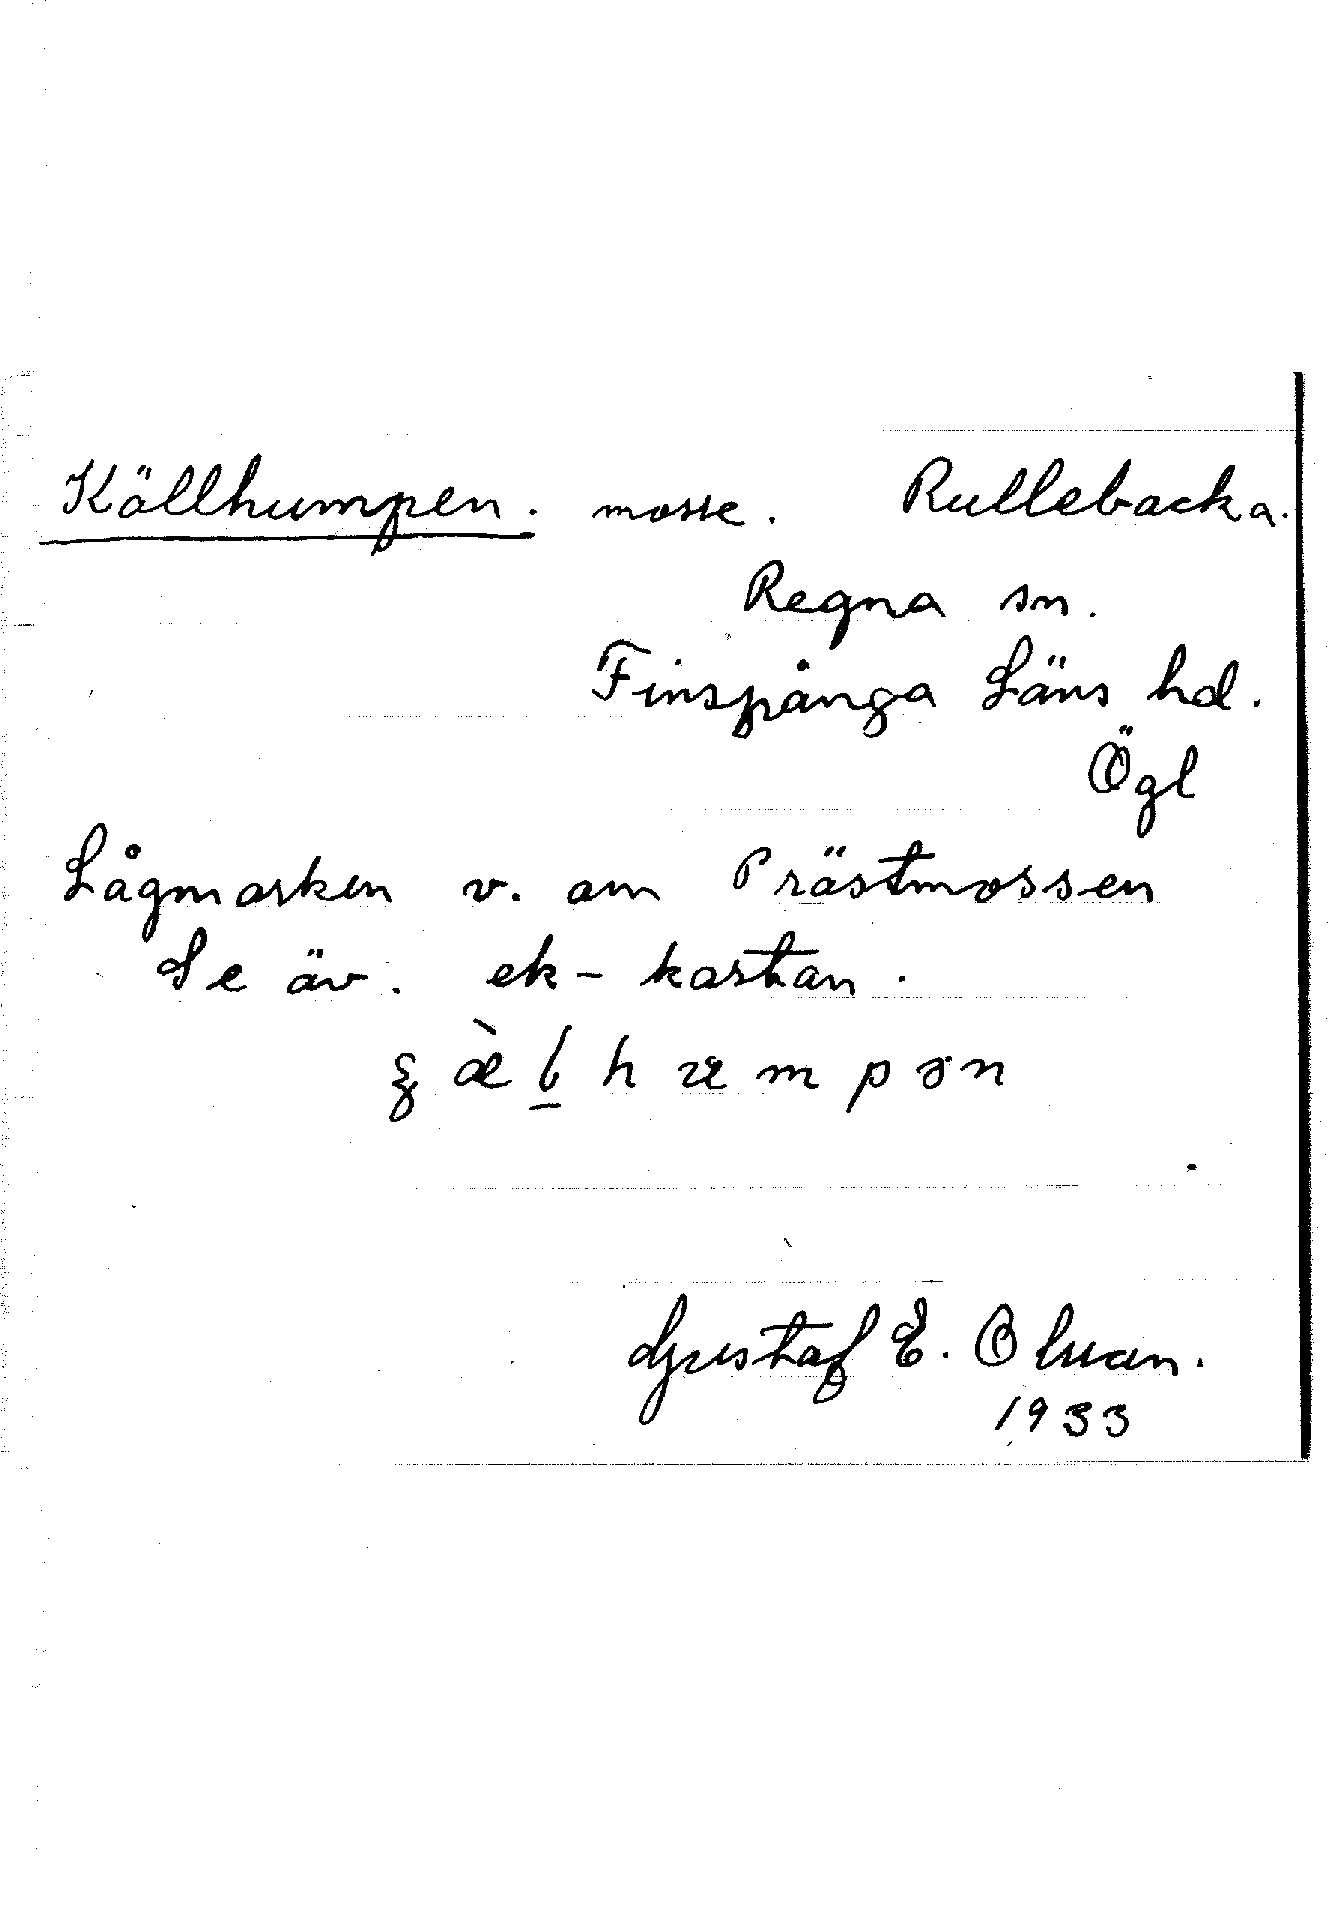 Källhumpen. mosse. Rullebacka.
Regna sn.
Finspånga Läns hd.
Ögl
Lågmarken v. om Prästmossen
Se äv. ek-kartan.
Gustaf E.
1933